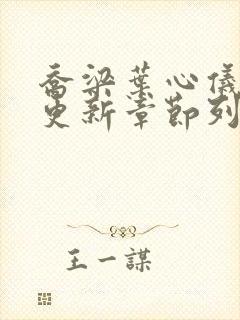 乔梁葉心儀
更新章節列
王一謀